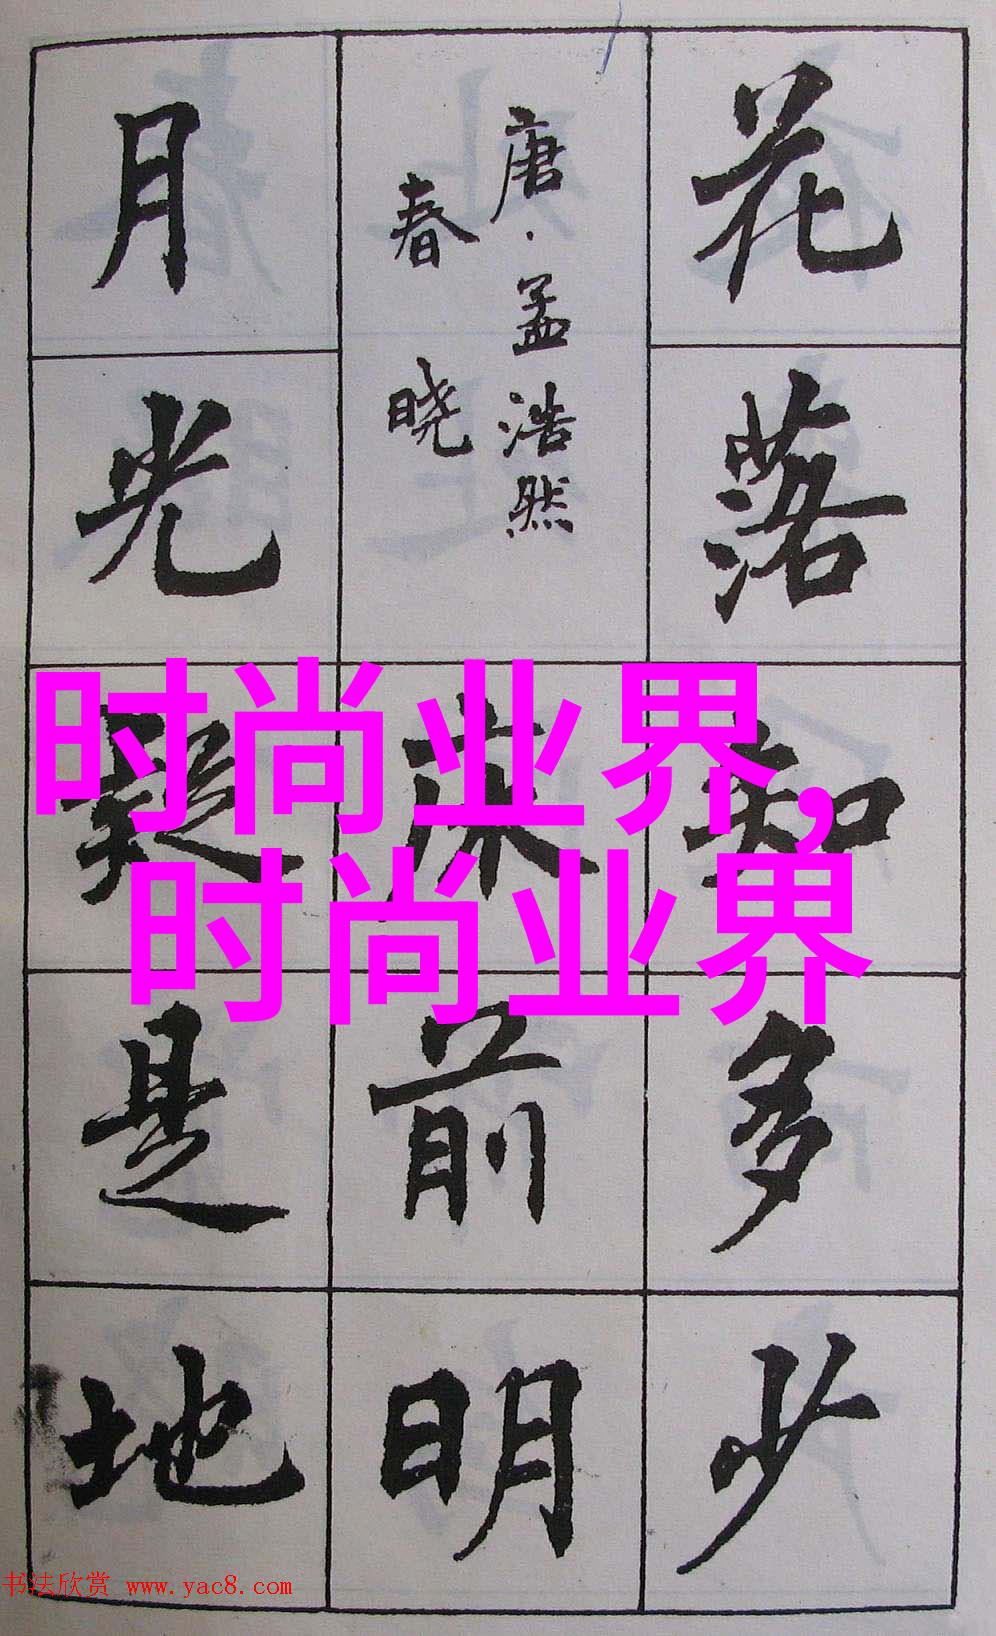 花落知多少
唐·孟浩然
春晓
床前明
月光疑是地
时尚业界,
时尚业界
书法欣赏 www.yac8.com